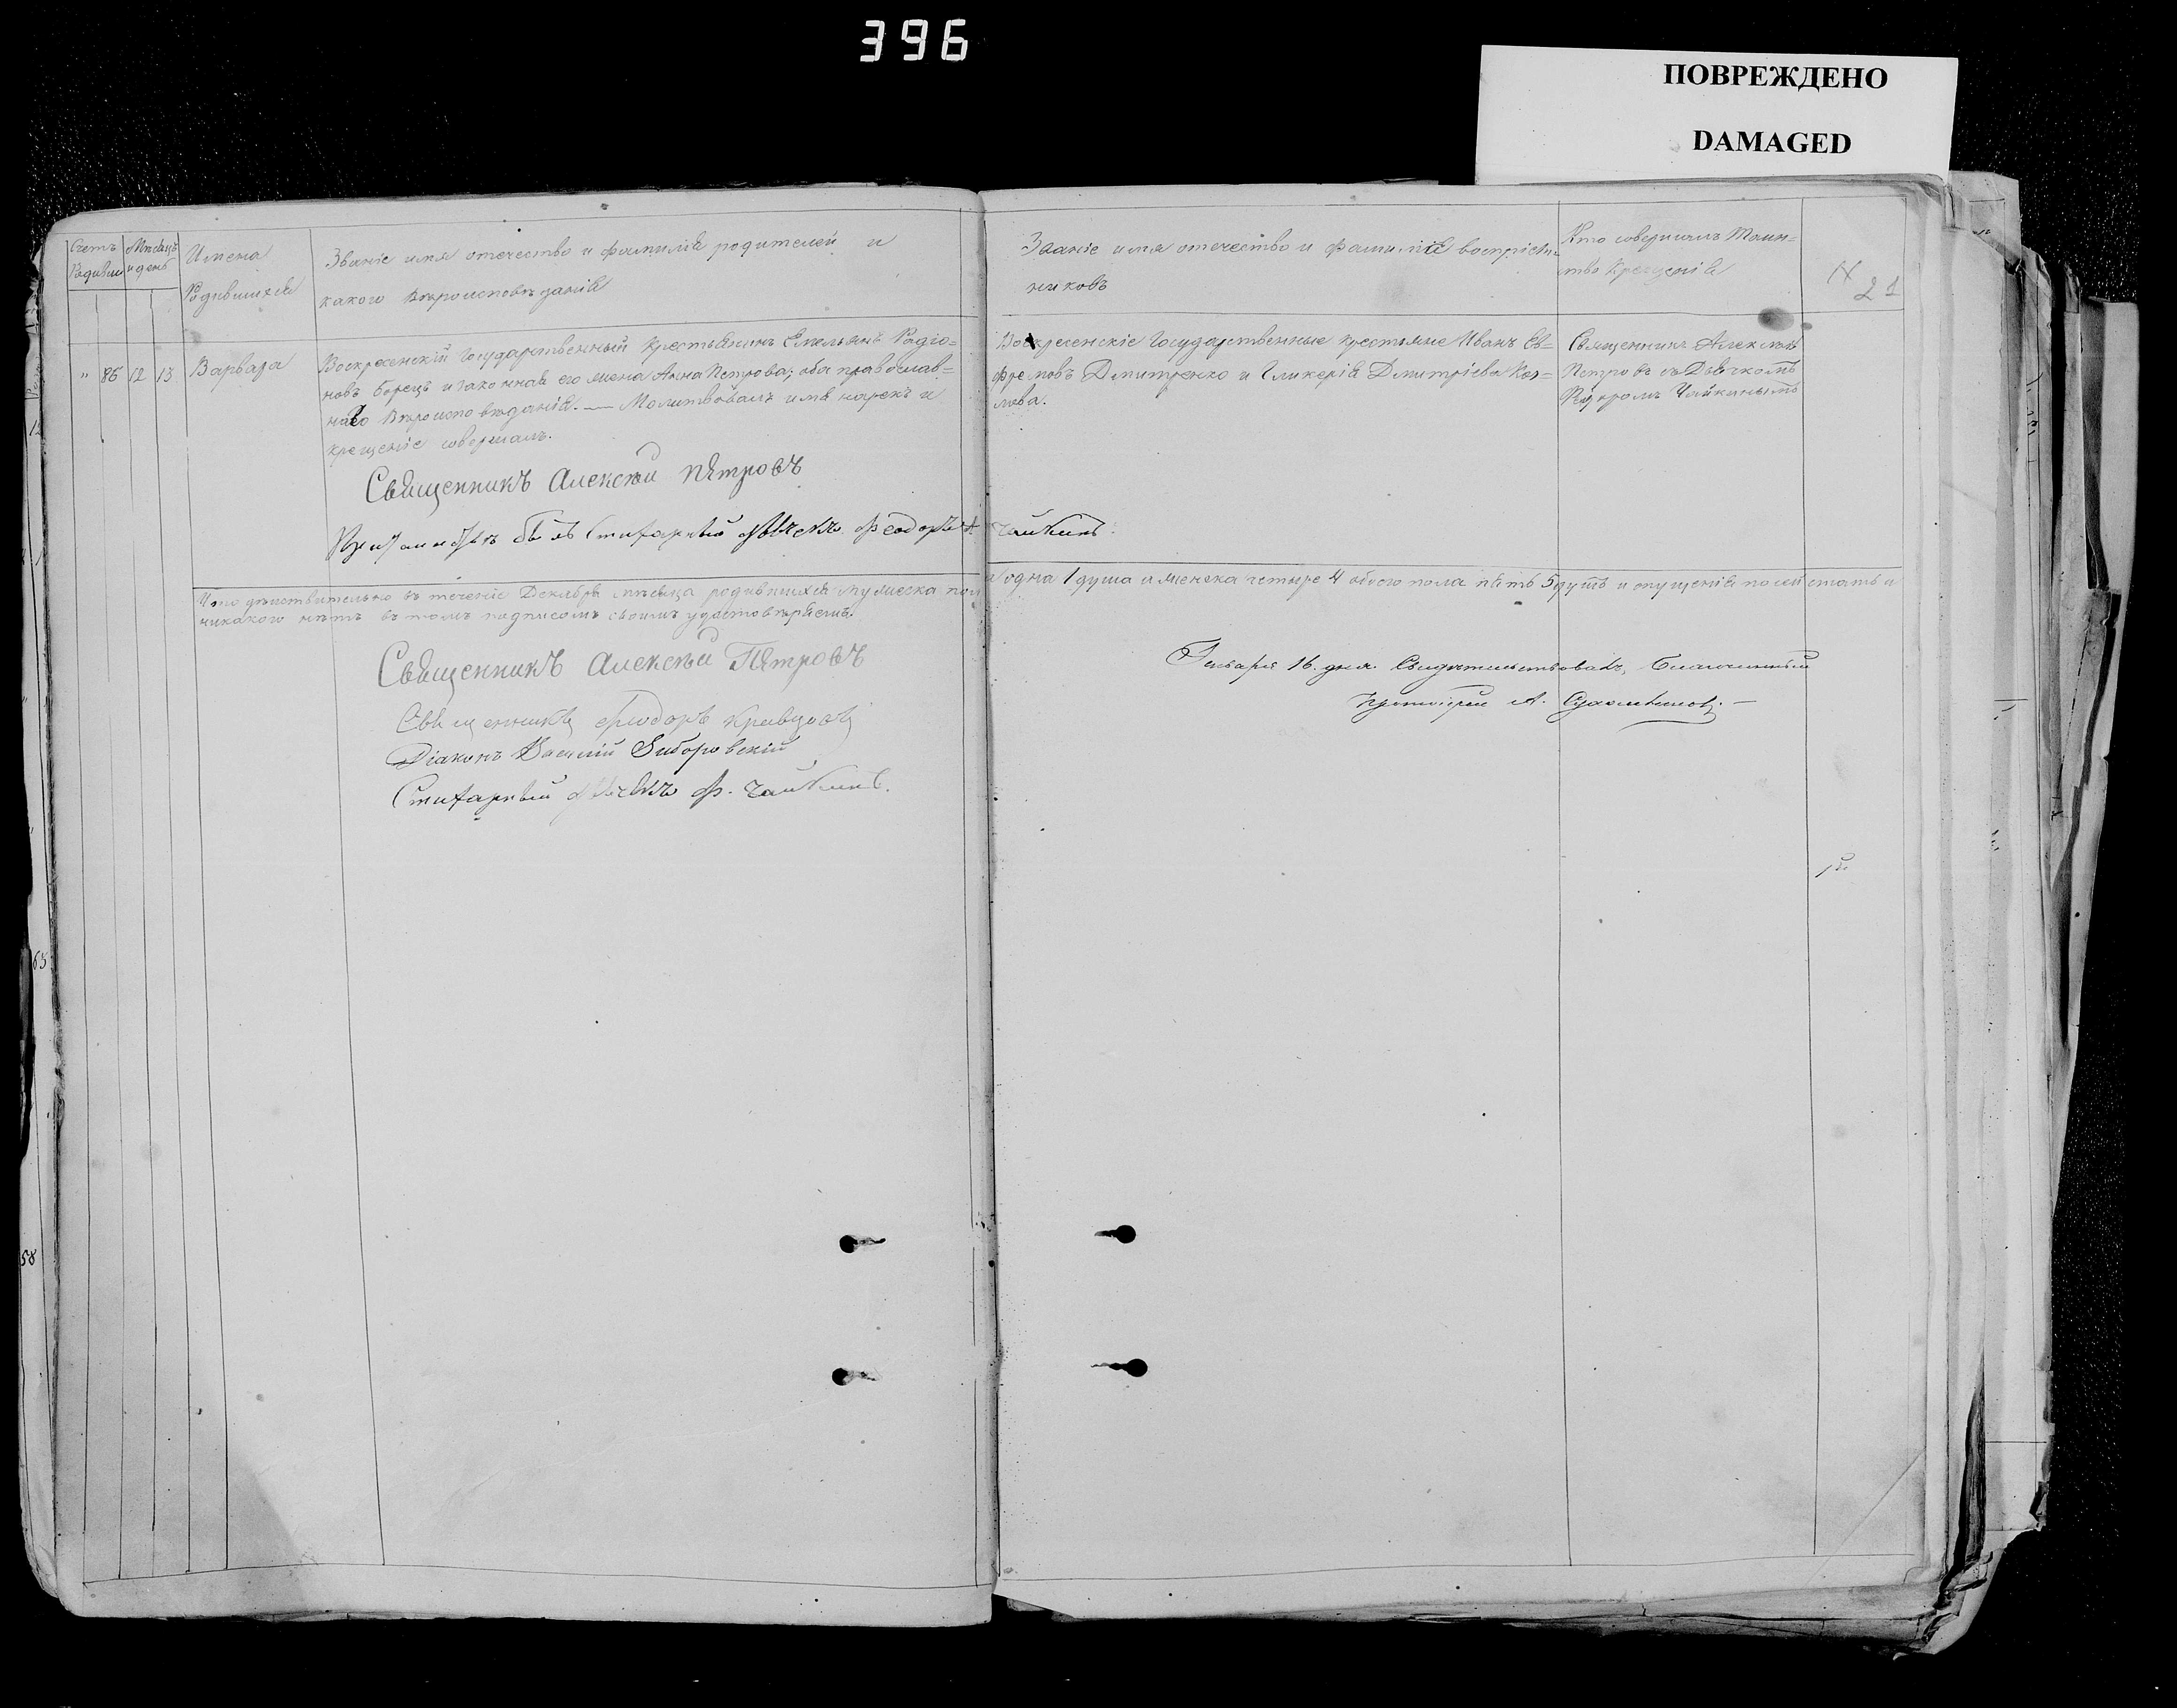 396
ПОВРЕЖДЕНО
DAMAGED
Счетъ
Родивши
Мѣсяцъ
и день
Имена
Родившихся
Званіе имя отечество и фамилія родителей и
какого вѣроисповѣданія
Званіе имя отечество и фамилія воспріем-
никовъ
Кто совершалъ Таин-
ство Крещенія
21
" 86 12 13
Варвара
Воскресенскій Государственный крестьянинъ Емельянъ Радіо=
новъ Борецъ и законная его жена Анна Петрова; оба православ=
наго Вѣроисповѣданія. — Молитвовалъ имя нарекъ и
крещеніе совершалъ.
Священникъ Алексѣй Пѣтровъ
При томъ былъ Стихарный Дьячекъ Феодоръ Чайкинъ.
Воскресенскіе Государственные крестьяне Иванъ Ев=
фремовъ Дмитренко и Гликерія Дмитріева Коз=
лова.
Священникъ Алексѣй
Петровъ съ Дьячкомъ
Федоромъ Чайкинымъ
Что дѣйствительно въ теченіе Декабря мѣсяца родившихся мужеска пола одна 1 душа а женска четыре 4 обоего пола пять 5 душъ и опущенія по сей статьи
никакого нѣтъ въ томъ подписомъ своимъ удостовѣряемъ.
Священникъ Алексѣй Пѣтровъ
Священникъ Феодоръ Кравцовъ
Діаконъ Василій Зиборовскій
Стихарный Дьячекъ Ф. Чайкинъ.
Января 16. дня. Свидѣтельствовалъ, Благочинный
Протоіерей А.
65
58